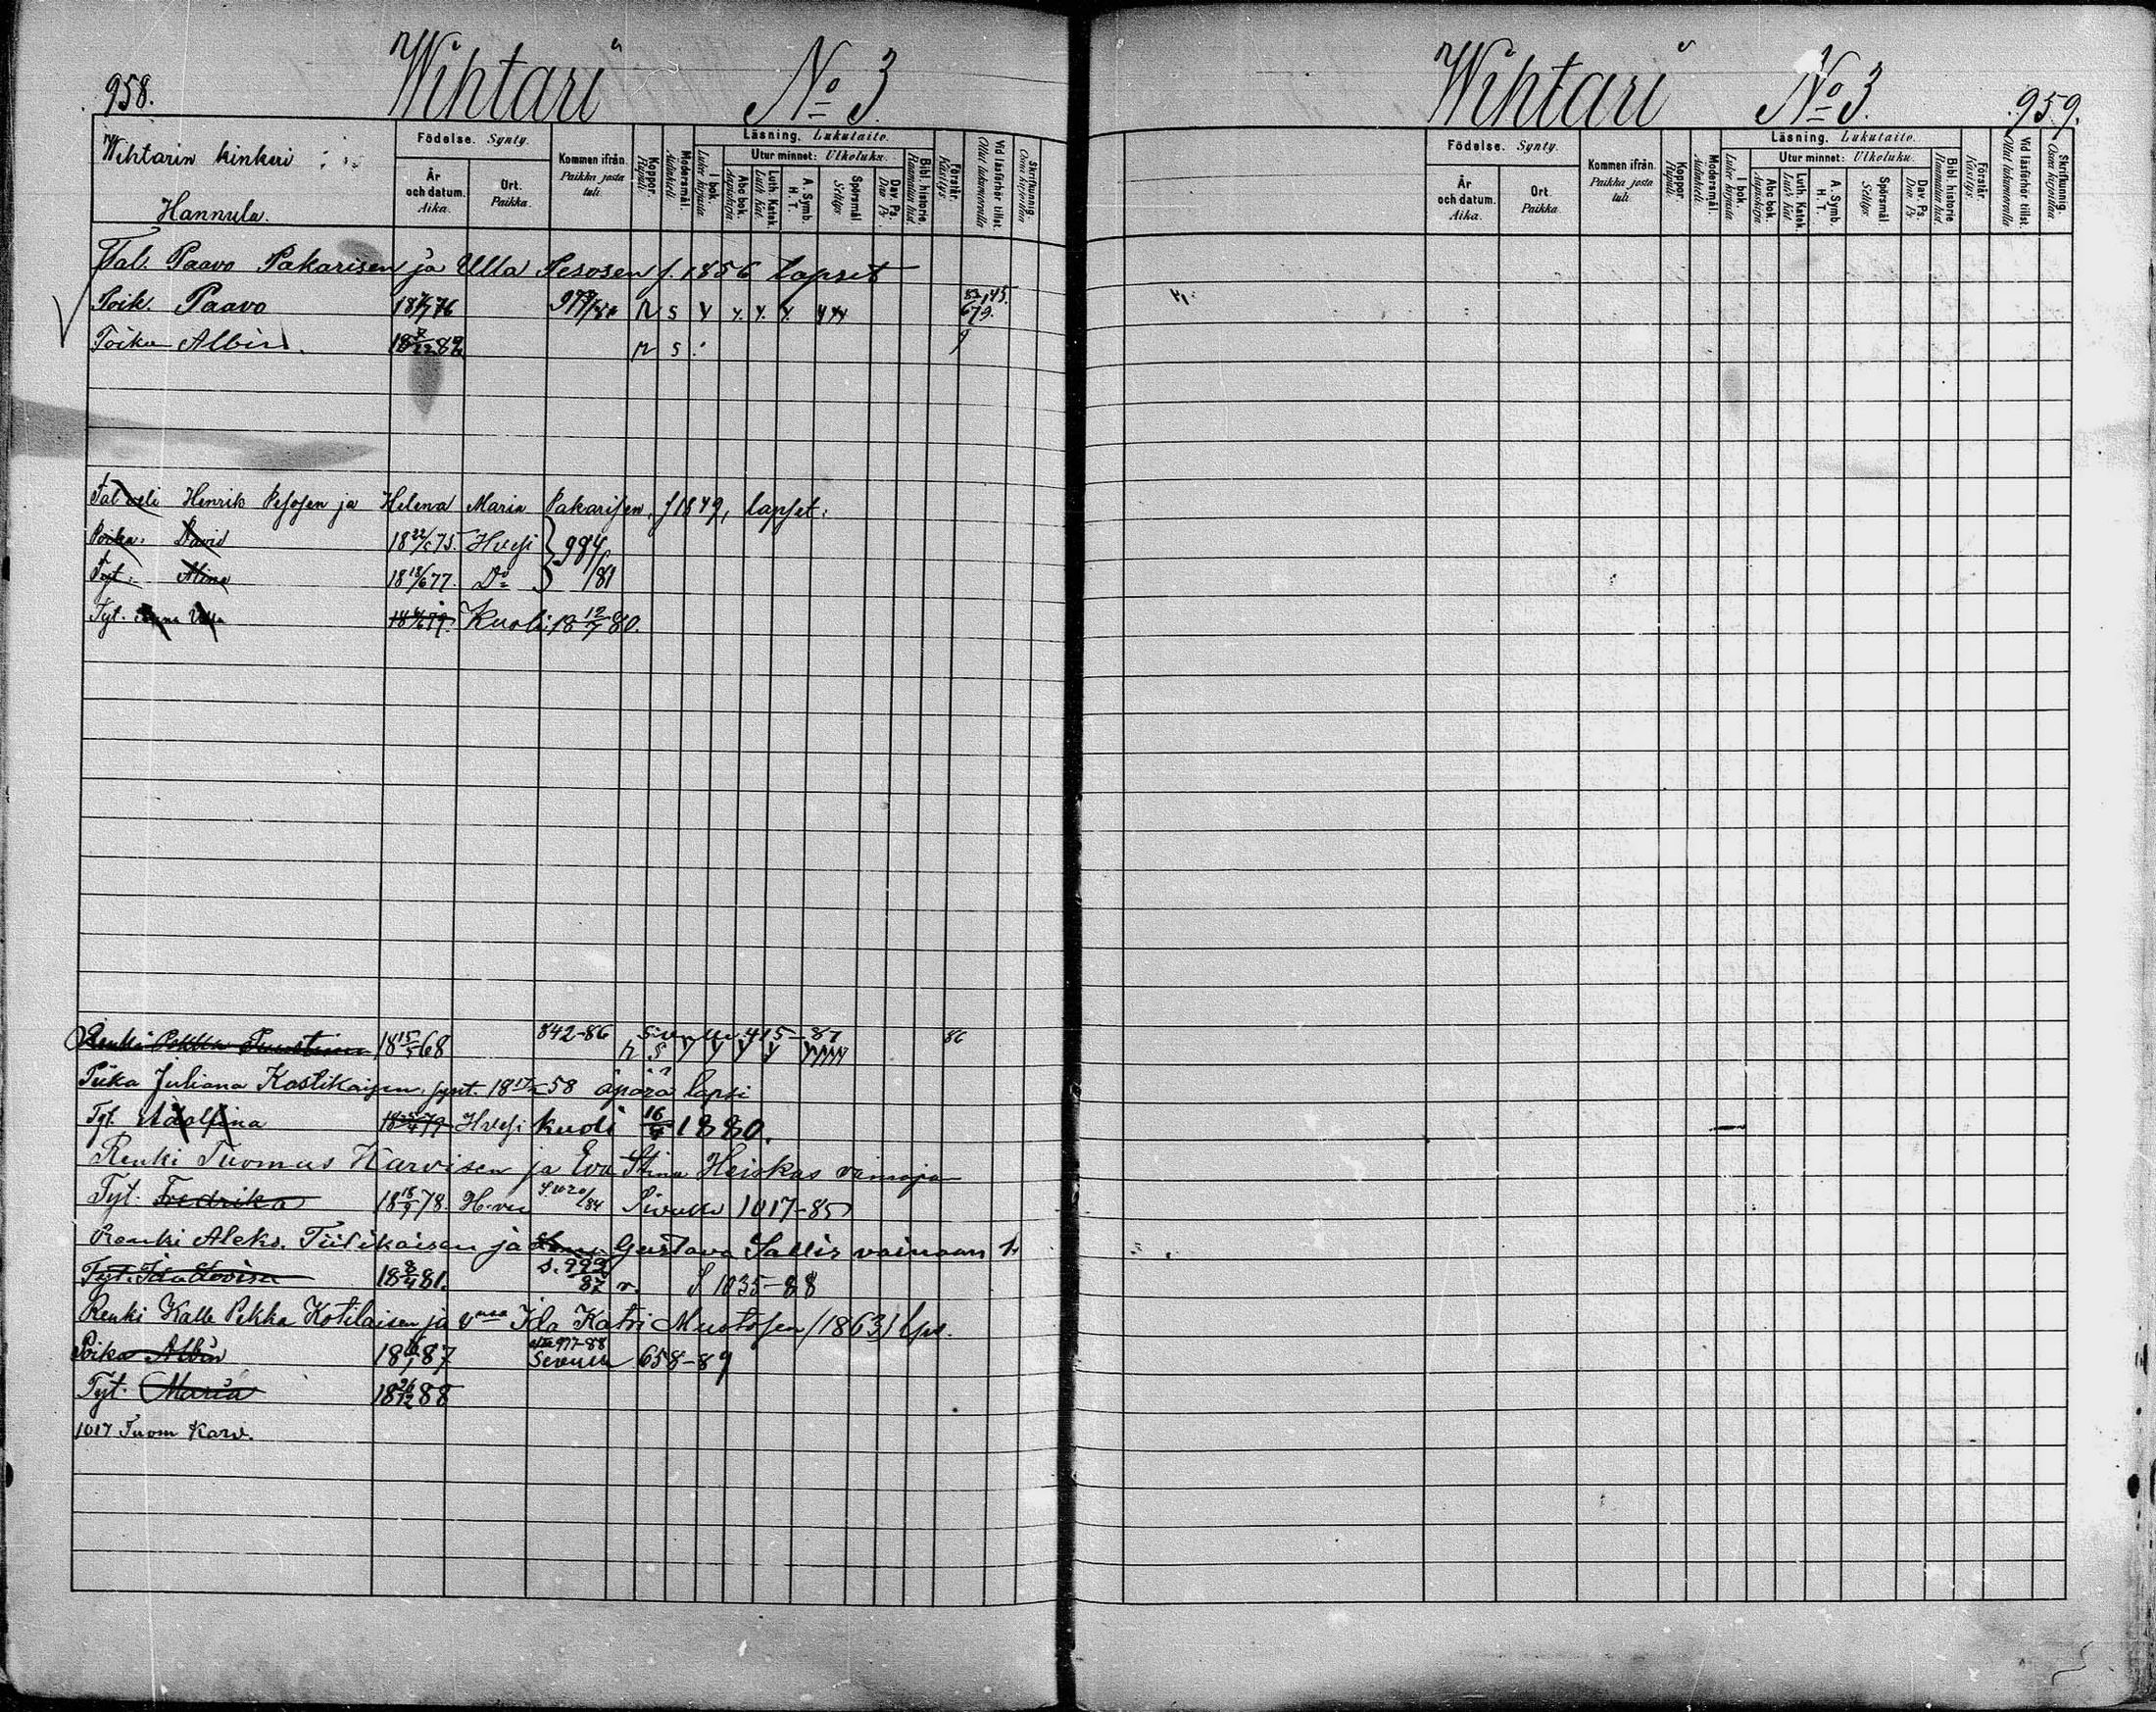 958.
Wihtari No 3.
Wihtarin kinkeri
Hannula.
Födelse. Synty.
År och datum. Aika.
Ort. Paikka.
Kommen ifrån. Paikka josta tuli.
Koppor. Rupuli.
Modersmål. Äidinkieli.
Läsning. Lukutaito.
I bok. Lukee kirjasta
Utur minnet: Ulkoluku.
Abc bok. Aapiskirja
Luth. Katek. Luth. Kat.
A. Symb. H. T.
Spörsmål. Selitys
Dav. Ps. Dav. Ps.
Bibl. historie. Raamatun hist.
Förstår. Käsitys.
Vid läsförhör tillst. Ollut lukutavoilla
Skrifkunnig. Osaa kirjoittaa.
Tal. Paavo Pakarisen ja Ulla Pesosen f. 1856 lapset
Poik. Paavo 76 r s
Poika Albin. 82 r s
Tal veli Henrik Pesosen ja Helena Maria Pakarisen, f 1849, lapset:
Poika: David 18 22/ 75. Hvesi 984/81
Tyt: Alina 18 18/6 77. Do
Tyt. Kuoli 18 12/7 80.
Renki Pekka 18 15/5 68 842-86 Sivulle 415-87 86
r s
Piika Juliana Kostikaisen, synt. 58 äpärä lapsi
Tyt. Adolfina 79 Hvesi kuoli 1880.
Renki Tuomas Karvisen ja Eva Stina Heiskas vainaja
Tyt. Fredrika 18 18/9 78. H:vesi Sivulle 1017-85
Renki Aleks. Tiilikaisen ja Gustava Sallis vainaan l.
Tyt. Ida Lovisa 18 8/4 81. s. 992/87 r. S 1035-88
Renki Kalle Pekka Kotilaisen ja Ida Katri Mustosen (1863) lps.
Poika Albin 87 977-88 Sivulle 658-89
Tyt. Maria 18 26/12 88
1017 Tuom Karv.
Wihtari No 3.
959.
Födelse. Synty.
År och datum. Aika.
Ort. Paikka
Kommen ifrån. Paikka josta tuli
Koppor. Rupuli.
Modersmål. Äidinkieli.
Läsning. Lukutaito.
I bok. Lukee kirjasta
Utur minnet: Ulkoluku.
Abc bok. Aapiskirja
Luth. Katek. Luth. Kat
A. Symb. H. T.
Spörsmål Selitys
Dav. Ps. Dav. Ps.
Bibl. historie Raamatun hist.
Förstår. Käsitys.
Vid läsförhör tillst. Ollut lukutavoilla
Skrifkunnig. Osaa kirjoittaa.